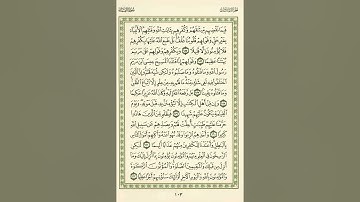 فَبِمَا نَقْضِهِم مِّيثَٰقَهُمْ وَكُفْرِهِم بِـَٔايَٰتِ ٱللَّهِ وَقَتْلِهِمُ ٱلْأَنۢبِيَآءَ
بِغَيْرِ حَقٍّ وَقَوْلِهِمْ قُلُوبُنَا غُلْفٌۢ بَلْ طَبَعَ ٱللَّهُ عَلَيْهَا بِكُفْرِهِمْ
فَلَا يُؤْمِنُونَ إِلَّا قَلِيلًا ١٥٥ وَبِكُفْرِهِمْ وَقَوْلِهِمْ عَلَىٰ مَرْيَمَ
بُهْتَٰنًا عَظِيمًا ١٥٦ وَقَوْلِهِمْ إِنَّا قَتَلْنَا ٱلْمَسِيحَ عِيسَى ٱبْنَ مَرْيَمَ
رَسُولَ ٱللَّهِ وَمَا قَتَلُوهُ وَمَا صَلَبُوهُ وَلَٰكِن شُبِّهَ لَهُمْ وَإِنَّ ٱلَّذِينَ
ٱخْتَلَفُوا۟ فِيهِ لَفِى شَكٍّ مِّنْهُ مَا لَهُم بِهِۦ مِنْ عِلْمٍ إِلَّا ٱتِّبَاعَ ٱلظَّنِّ
وَمَا قَتَلُوهُ يَقِينًۢا ١٥٧ بَل رَّفَعَهُ ٱللَّهُ إِلَيْهِ وَكَانَ ٱللَّهُ عَزِيزًا حَكِيمًا
١٥٨ وَإِن مِّنْ أَهْلِ ٱلْكِتَٰبِ إِلَّا لَيُؤْمِنَنَّ بِهِۦ قَبْلَ مَوْتِهِۦ وَيَوْمَ
ٱلْقِيَٰمَةِ يَكُونُ عَلَيْهِمْ شَهِيدًا ١٥٩ فَبِظُلْمٍ مِّنَ ٱلَّذِينَ هَادُوا۟
حَرَّمْنَا عَلَيْهِمْ طَيِّبَٰتٍ أُحِلَّتْ لَهُمْ وَبِصَدِّهِمْ عَن سَبِيلِ ٱللَّهِ
كَثِيرًا ١٦٠ وَأَخْذِهِمُ ٱلرِّبَوٰا۟ وَقَدْ نُهُوا۟ عَنْهُ وَأَكْلِهِمْ أَمْوَٰلَ ٱلنَّاسِ
بِٱلْبَٰطِلِ وَأَعْتَدْنَا لِلْكَٰفِرِينَ مِنْهُمْ عَذَابًا أَلِيمًا ١٦١ لَّٰكِنِ
ٱلرَّٰسِخُونَ فِى ٱلْعِلْمِ مِنْهُمْ وَٱلْمُؤْمِنُونَ يُؤْمِنُونَ بِمَآ أُنزِلَ إِلَيْكَ
وَمَآ أُنزِلَ مِن قَبْلِكَ وَٱلْمُقِيمِينَ ٱلصَّلَوٰةَ وَٱلْمُؤْتُونَ ٱلزَّكَوٰةَ
وَٱلْمُؤْمِنُونَ بِٱللَّهِ وَٱلْيَوْمِ ٱلْءَاخِرِ أُو۟لَٰٓئِكَ سَنُؤْتِيهِمْ أَجْرًا عَظِيمًا ١٦٢
١٠٣